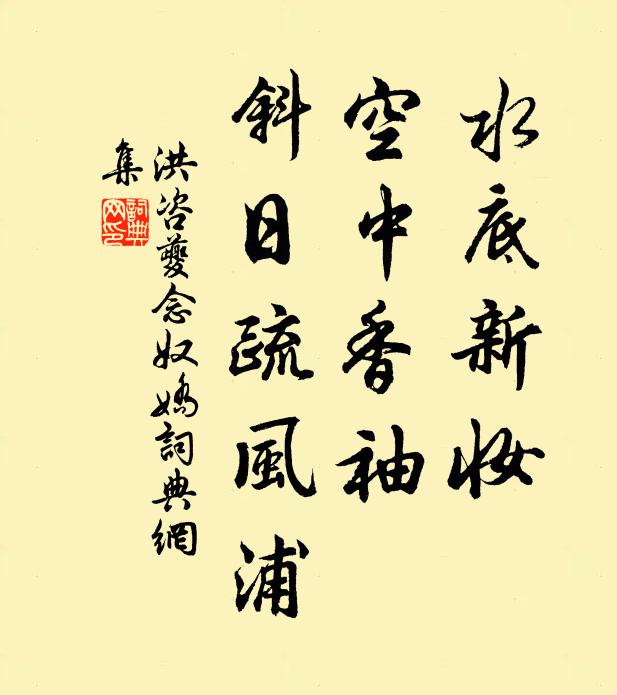 水底新妝
空中香袖
斜日疏風浦
洪咨夔念奴嬌詞典網
集
詞典
网印